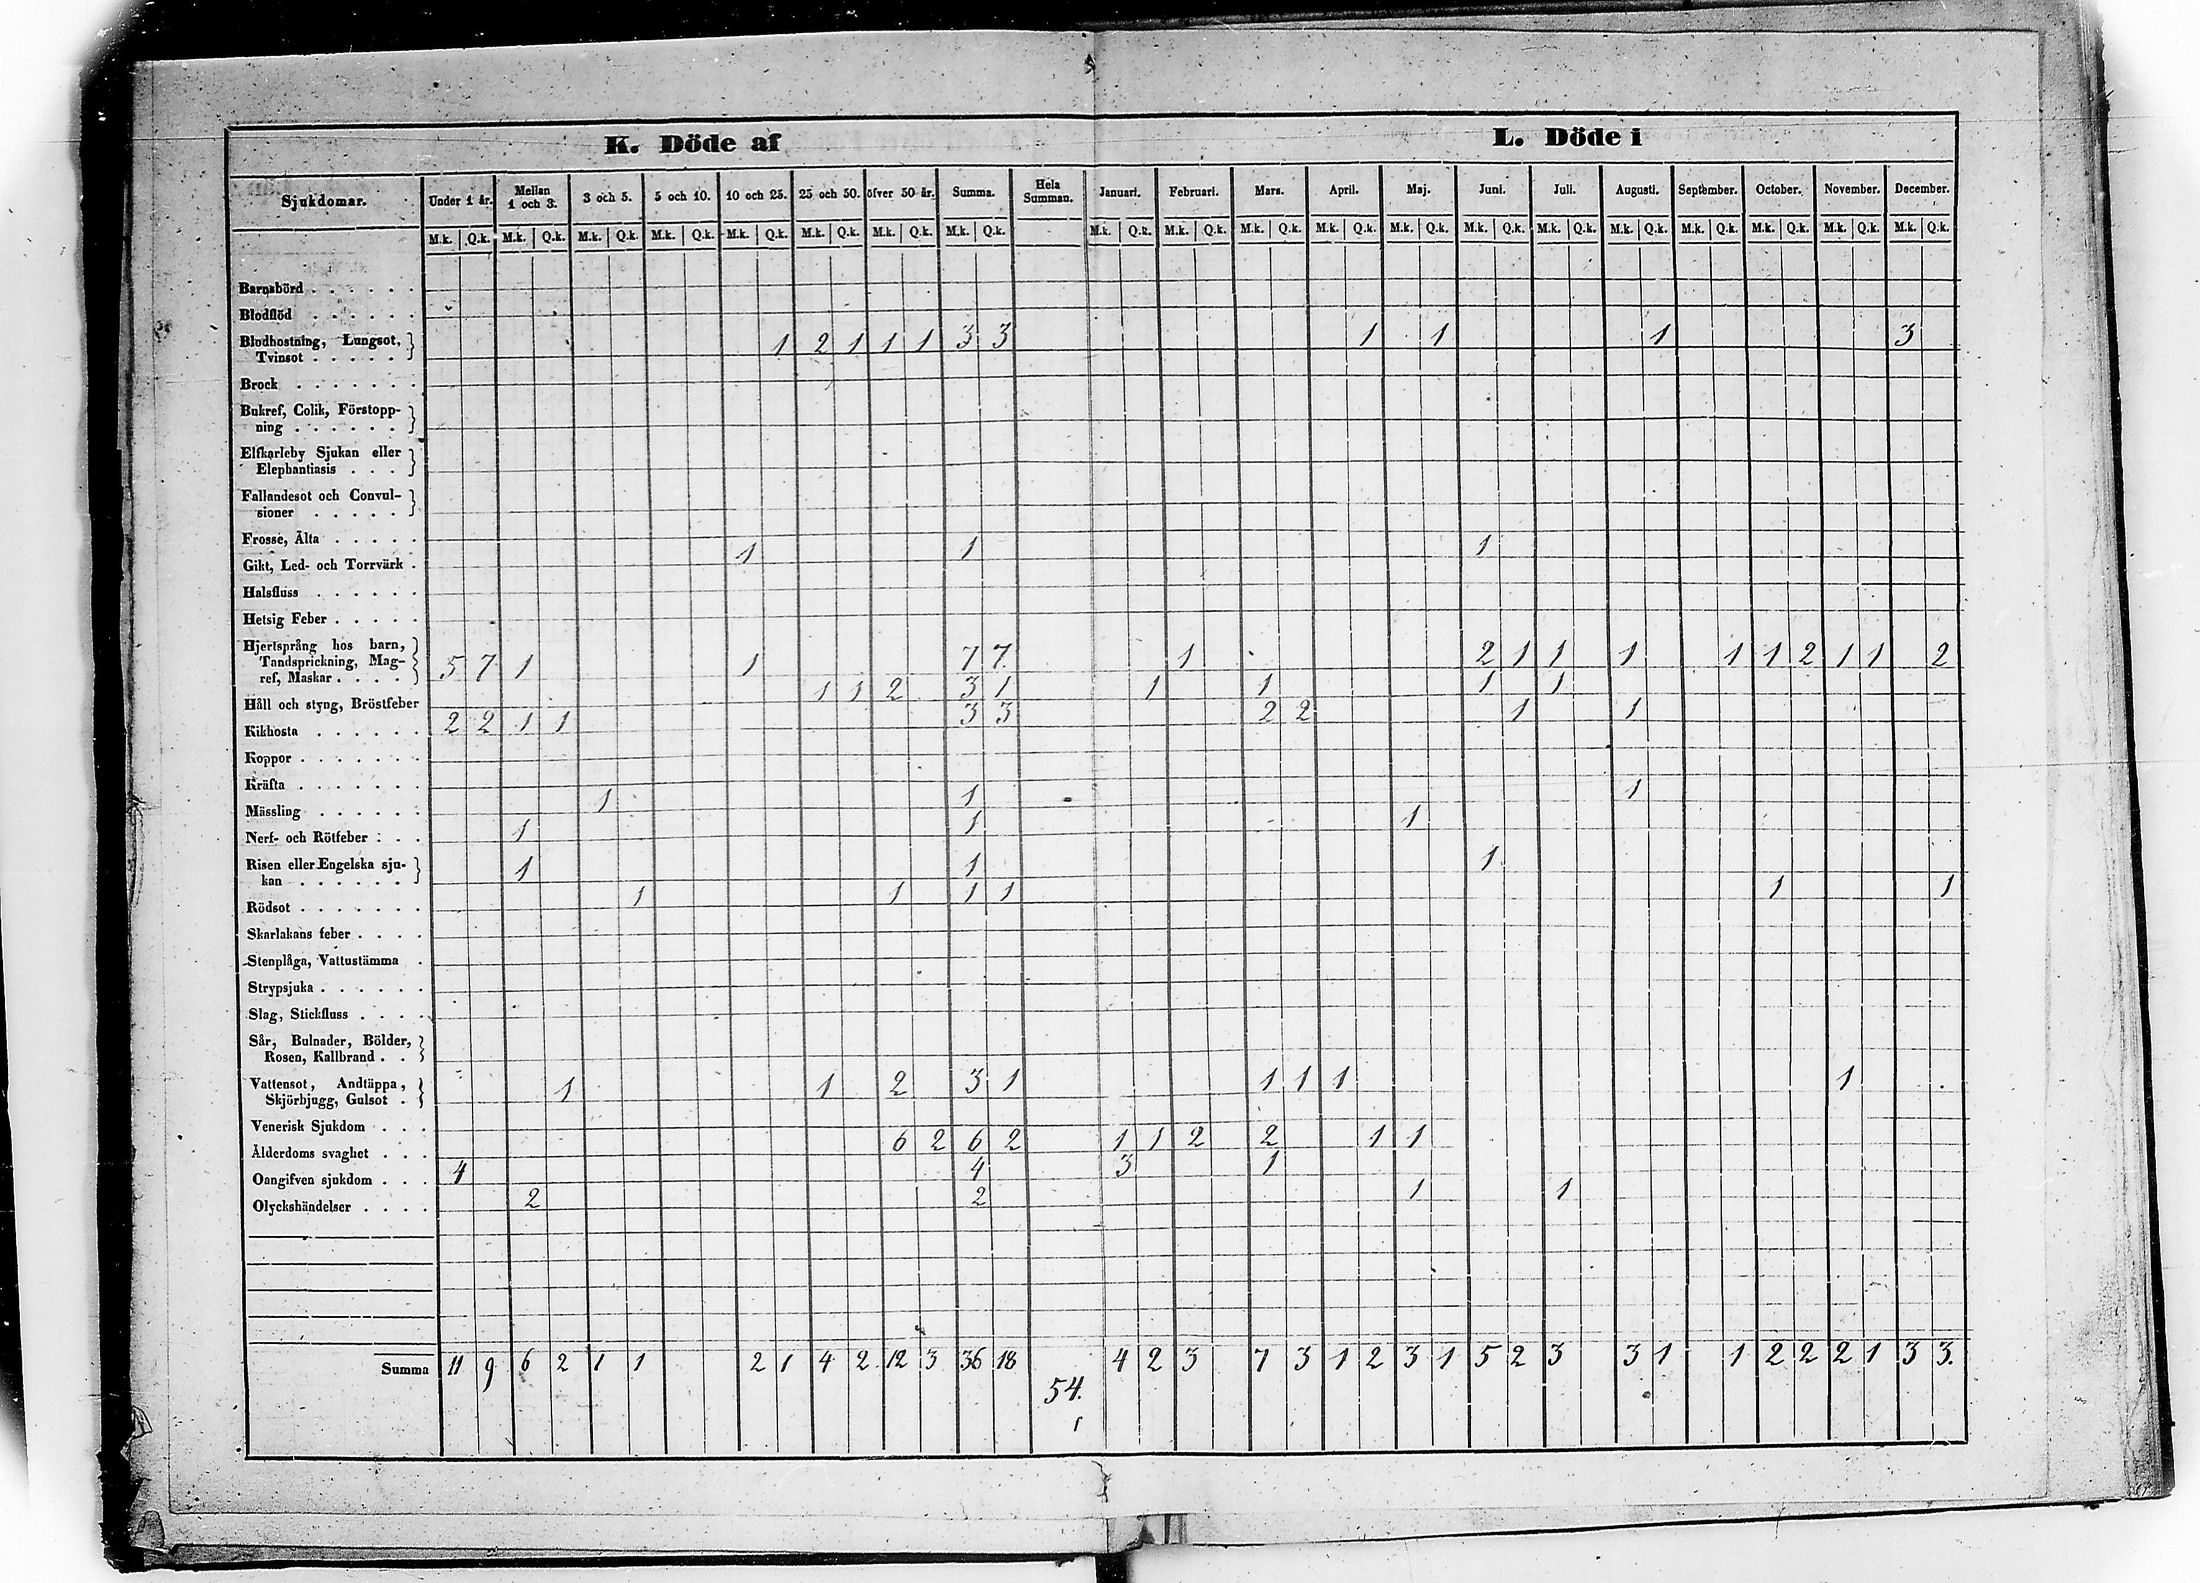 K. Döde af L. Döde i
Sjukdomar. Under 1 år. Mellan 1 och 3. 3 och 5. 5 och 10. 10 och 25. 25 och 50. öfver 50 år. Summa. Hela Summan. Januari. Februari. Mars. April. Maj. Juni. Juli. Augusti. September. October. November. December.
M.k. Q.k. M.k. Q.k. M.k. Q.k. M.k. Q.k. M.k. Q.k. M.k. Q.k. M.k. Q.k. M.k. Q.k. M.k. Q.k. M.k. Q.k. M.k. Q.k. M.k. Q.k. M.k. Q.k. M.k. Q.k. M.k. Q.k. M.k. Q.k. M.k. Q.k. M.k. Q.k. M.k. Q.k. M.k. Q.k.
Barnsbörd . . . . . .
Blodflöd . . . . . .
Blodhostning, Lungsot,
Tvinsot . . . . . 1 2 1 1 1 3 3 1 1 1 3
Brock . . . . . . .
Bukref, Colik, Förstopp-
ning . . . . . .
Elfkarleby Sjukan eller
Elephantiasis . . .
Fallandesot och Convul-
sioner . . . . .
Frosse, Älta . . . . .
1 1 1
Gikt, Led- och Torrvärk .
Halsfluss . . . . . .
Hetsig Feber . . . . .
Hjertsprång hos barn,
Tandsprickning, Mag-
ref, Maskar . . . . 5 7 1 1 7 7 1 2 1 1 1 1 1 2 1 1 2
1 1 2 3 1 1 1 1 1
Håll och styng, Bröstfeber
Kikhosta . . . . . . 2 2 1 1 3 3 2 2 1 1
Koppor . . . . . . .
Kräfta . . . . . . .
1 1 1
Mässling . . . . . .
Nerf- och Rötfeber . . . 1 1 1
Risen eller Engelska sju-
kan . . . . . . 1 1 1
1 1 1 1 1 1
Rödsot . . . . . . .
Skarlakans feber . . . .
Stenplåga, Vattustämma .
Strypsjuka . . . . . .
Slag, Stickfluss . . . .
Sår, Bulnader, Bölder,
Rosen, Kallbrand . .
Vattensot, Andtäppa,
Skjörbjugg, Gulsot . 1 1 2 3 1 1 1 1 1
Venerisk Sjukdom . . .
6 2 6 2 1 1 2 2 1 1
Ålderdoms svaghet . . .
4 4 3 1
Oangifven sjukdom . . .
2 2 1 1
Olyckshändelser . . . .
Summa 11 9 6 2 1 1 2 1 4 2 12 3 36 18 4 2 3 7 3 1 2 3 1 5 2 3 3 1 1 2 2 2 1 3 3.
54.